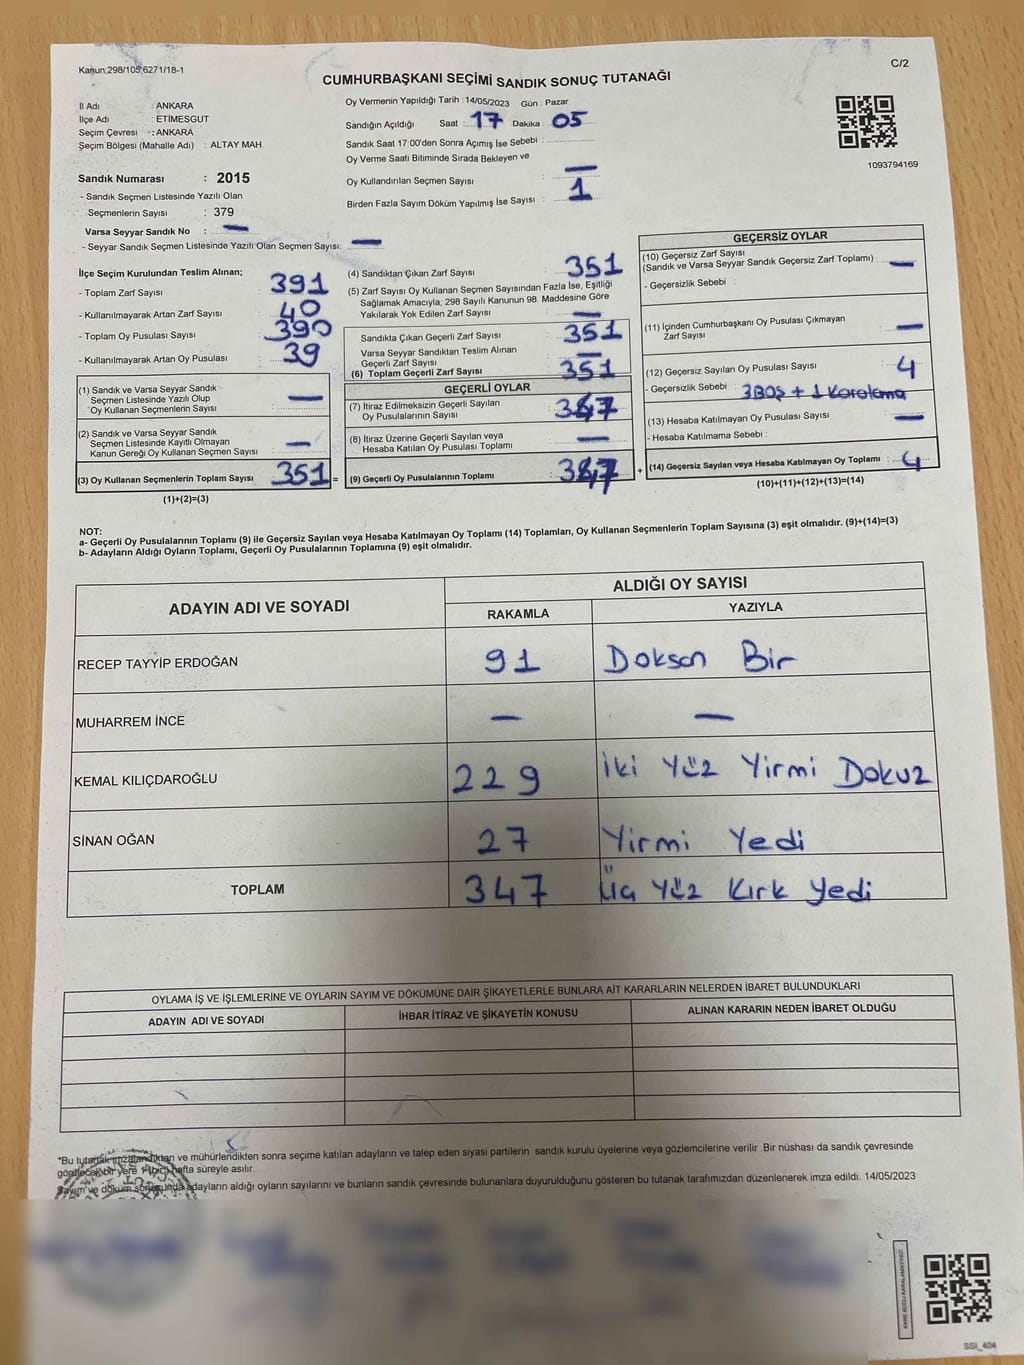 Kanun,298/105,6271/18-1
C/2
CUMHURBAŞKANI SEÇİMİ SANDIK SONUÇ TUTANAĞI
İl Adı : ANKARA
İlçe Adı : ETİMESGUT
Seçim Çevresi : ANKARA
Seçim Bölgesi (Mahalle Adı) : ALTAY MAH.
Oy Vermenin Yapıldığı Tarih : 14/05/2023 Gün : Pazar
Sandığın Açıldığı Saat : 17 Dakika : 05
Sandık Saat 17:00'den Sonra Açımış İse Sebebi :
Oy Verme Saati Bitiminde Sırada Bekleyen ve
Oy Kullandırılan Seçmen Sayısı : —
Birden Fazla Sayım Döküm Yapılmış İse Sayısı : 1
1093794169
Sandık Numarası : 2015
- Sandık Seçmen Listesinde Yazılı Olan
Seçmenlerin Sayısı : 379
Varsa Seyyar Sandık No : —
- Seyyar Sandık Seçmen Listesinde Yazılı Olan Seçmen Sayısı: —
İlçe Seçim Kurulundan Teslim Alınan;
- Toplam Zarf Sayısı : 391
- Kullanılmayarak Artan Zarf Sayısı : 40
- Toplam Oy Pusulası Sayısı : 390
- Kullanılmayarak Artan Oy Pusulası : 39
(1) Sandık ve Varsa Seyyar Sandık
Seçmen Listesinde Yazılı Olup
Oy Kullanan Seçmenlerin Sayısı : —
(2) Sandık ve Varsa Seyyar Sandık
Seçmen Listesinde Kayıtlı Olmayan
Kanun Gereği Oy Kullanan Seçmen Sayısı : —
(3) Oy Kullanan Seçmenlerin Toplam Sayısı : 351 =
(1)+(2)=(3)
(4) Sandıktan Çıkan Zarf Sayısı : 351
(5) Zarf Sayısı Oy Kullanan Seçmen Sayısından Fazla İse, Eşitliği
Sağlamak Amacıyla; 298 Sayılı Kanunun 98. Maddesine Göre
Yakılarak Yok Edilen Zarf Sayısı : —
Sandıkta Çıkan Geçerli Zarf Sayısı : 351
Varsa Seyyar Sandıktan Teslim Alınan
Geçerli Zarf Sayısı : —
(6) Toplam Geçerli Zarf Sayısı : 351
GEÇERLİ OYLAR
(7) İtiraz Edilmeksizin Geçerli Sayılan
Oy Pusulasının Sayısı : 347
(8) İtiraz Üzerine Geçerli Sayılan veya
Hesaba Katılan Oy Pusulası Toplamı : —
(9) Geçerli Oy Pusulalarının Toplamı : 347 +
GEÇERSİZ OYLAR
(10) Geçersiz Zarf Sayısı
(Sandık ve Varsa Seyyar Sandık Geçersiz Zarf Toplamı) : —
- Geçersizlik Sebebi :
(11) İçinden Cumhurbaşkanı Oy Pusulası Çıkmayan
Zarf Sayısı : —
(12) Geçersiz Sayılan Oy Pusulası Sayısı : 4
- Geçersizlik Sebebi : 3 BOŞ + 1 Karalama
(13) Hesaba Katılmayan Oy Pusulası Sayısı : —
- Hesaba Katılmama Sebebi :
(14) Geçersiz Sayılan veya Hesaba Katılmayan Oy Toplamı : 4
(10)+(11)+(12)+(13)=(14)
NOT:
a- Geçerli Oy Pusulalarının Toplamı (9) ile Geçersiz Sayılan veya Hesaba Katılmayan Oy Toplamı (14) Toplamları, Oy Kullanan Seçmenlerin Toplam Sayısına (3) eşit olmalıdır. (9)+(14)=(3)
b- Adayların Aldığı Oyların Toplamı, Geçerli Oy Pusulalarının Toplamına (9) eşit olmalıdır.
ADAYIN ADI VE SOYADI
ALDIĞI OY SAYISI
RAKAMLA YAZIYLA
RECEP TAYYİP ERDOĞAN 91 Doksan Bir
MUHARREM İNCE — —
KEMAL KILIÇDAROĞLU 229 İki Yüz Yirmi Dokuz
SİNAN OĞAN 27 Yirmi Yedi
TOPLAM 347 Üç Yüz Kırk Yedi
OYLAMA İŞ VE İŞLEMLERİNE VE OYLARIN SAYIM VE DÖKÜMÜNE DAİR ŞİKAYETLERLE BUNLARA AİT KARARLARIN NELERDEN İBARET BULUNDUKLARI
ADAYIN ADI VE SOYADI İHBAR İTİRAZ VE ŞİKAYETİN KONUSU ALINAN KARARIN NEDEN İBARET OLDUĞU
*Bu tutanak imzalandıktan ve mühürlendikten sonra seçime katılan adayların ve talep eden siyasi partilerin sandık kurulu üyelerine veya gözlemcilerine verilir .Bir nüshası da sandık çevresinde
görülecek bir yere 1 (bir) hafta süreyle asılır.
Sayım ve döküm sonusunda adayların aldığı oyların sayılarını ve bunların sandık çevresinde bulunanlara duyurulduğunu gösteren bu tutanak tarafımızdan düzenlenerek imza edildi. 14/05/2023
SSI_404